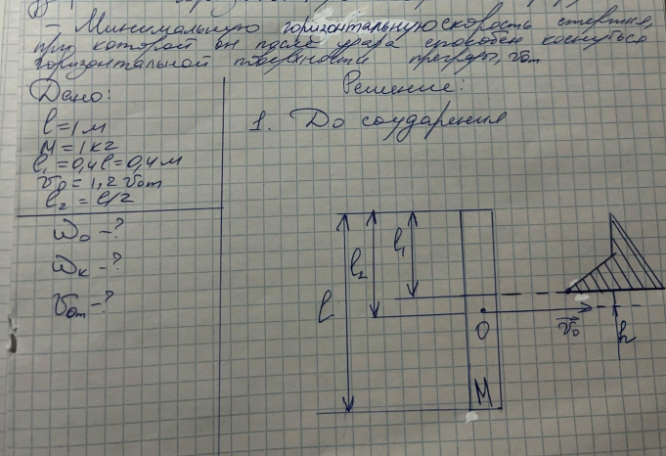 - Минимальную горизонтальную скорость стержня,
при которой он после удара способен коснуться
горизонтальной поверхности преграды, v₀m
Дано:
Решение:
l = 1 м
M = 1 кг
l₁ = 0,4 l = 0,4 м
v₀ = 1,2 v₀m
l₂ = l/2
ω₀ - ?
ωк - ?
v₀m - ?
1. До соударения
l
l₂
l₁
O
v₀
h
M